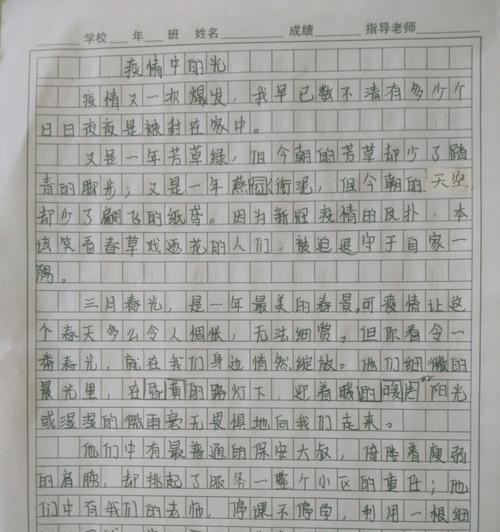 学校 年 班 姓名 成绩 指导老师
疫情中的光
疫情又一次爆发，我早已数不清有多少个
日日夜夜是被封在家中。
又是一年芳草绿，但今朝的芳草却少了踏
青的脚步；又是一年燕回衔泥，但今朝的天空
却少了翩飞的纸鸢。因为新冠疫情的反扑，本
该笑看春草戏逐花的人们，被迫退守于自家一
隅。
三月春光，是一年最美的春景，可疫情让这
个春天多么令人惆怅，无法细赏。但你看令一
番春光，就在我们身边悄然绽放。他们细微的
晨光里，在昏黄的路灯下，迎着暖的暖阳光
或湿湿的微雨毫无畏惧地向我们走来。
他们中有最普通的保安大叔，倚阵着瘦弱
的肩膀，却挑起了服务一整个小区的重任；他
们中有我们的老师，停课不停学，利用一根细